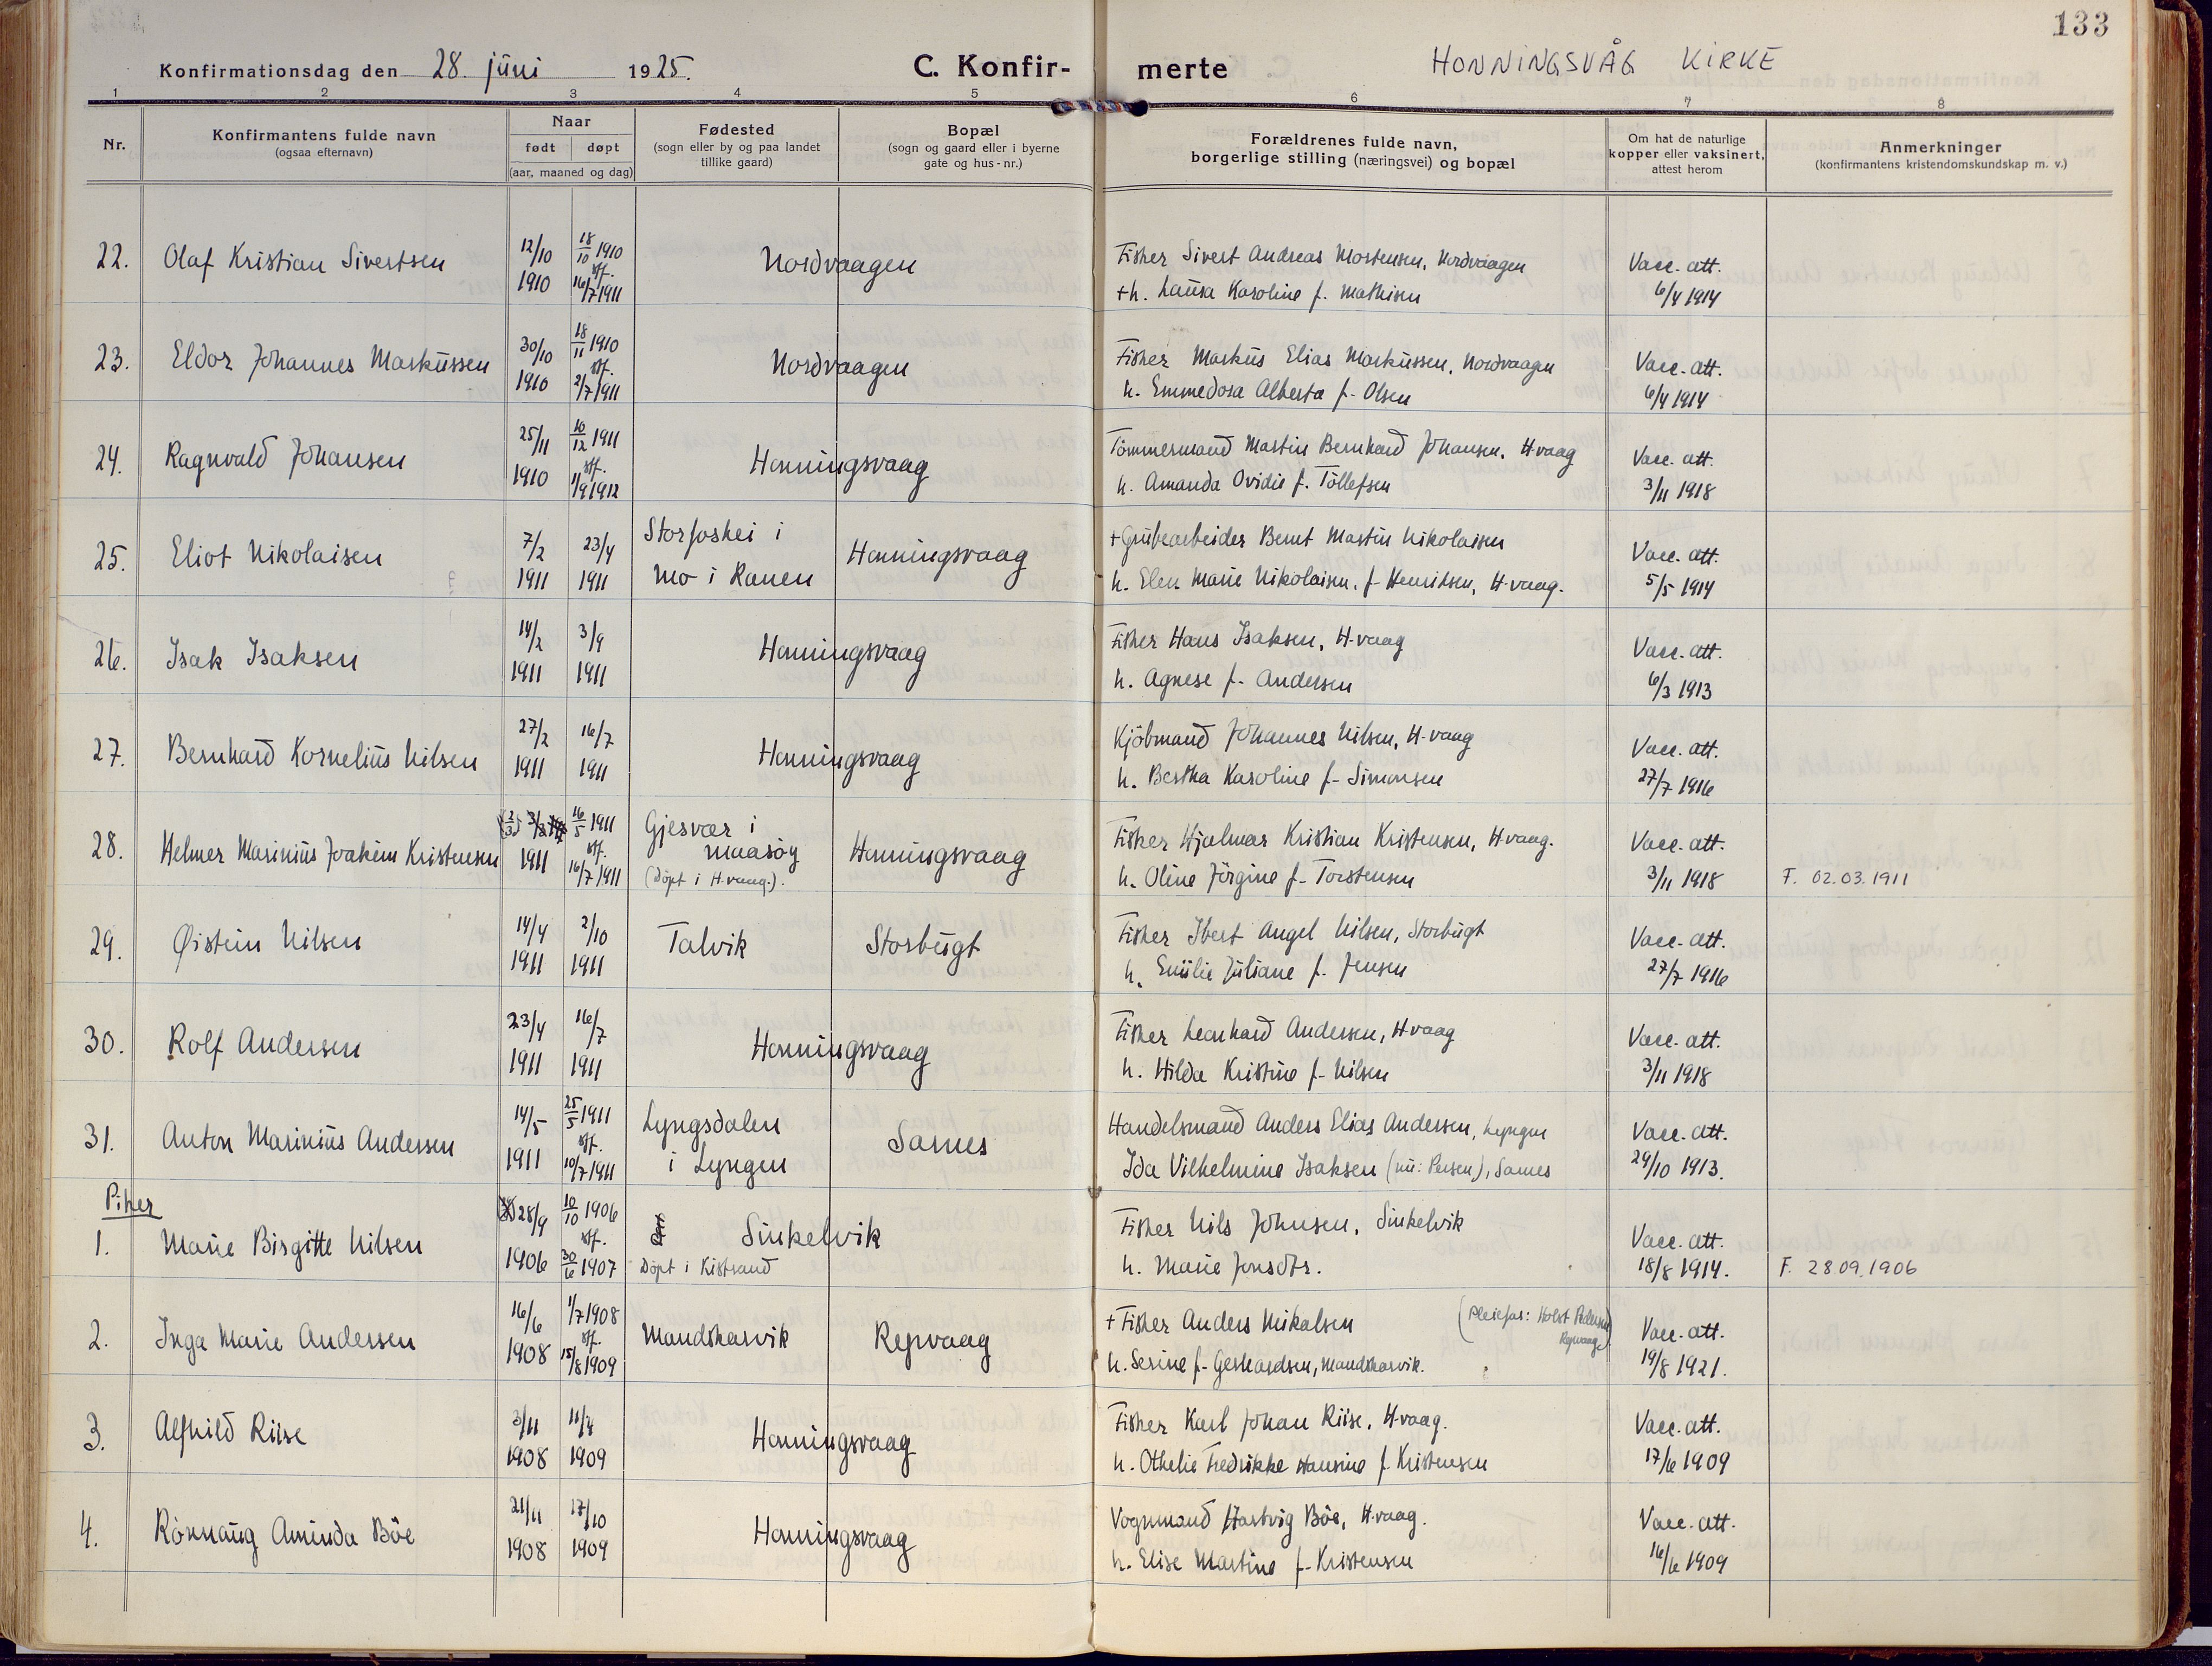 133
Konfirmationsdag den 28. juni 1925. C. Konfirmerte HONNINGSVÅG KIRKE
1 2 3 4 5 6 7 8
Nr.
Konfirmantens fulde navn
(ogsaa efternavn)
Naar
født døpt
(aar, maaned og dag)
Fødested
(sogn eller by og paa landet
tillike gaard)
Bopæl
(sogn og gaard eller i byerne
gate og hus-nr.)
Forældrenes fulde navn,
borgerlige stilling (næringsvei) og bopæl
Om hat de naturlige
kopper eller vaksinert,
attest herom
Anmerkninger
(konfirmantens kristendomskundskap m. v.)
22. Olaf Kristian Sivertsen 12/10 18/10 1910 Nordvaagen Fisker Sivert Andreas Mortensen, Nordvaagen Vacc. att.
1910 stf. 16/7 1911 +h. Laura Karoline f. Mathisen 6/4 1914
23. Eldor Johannes Markussen 30/10 18/11 1910 Nordvaagen Fisker Markus Elias Markussen, Nordvaagen Vacc. att.
1910 stf. 2/7 1911 h. Emmedora Alberta f. Olsen 6/4 1914
24. Ragnvald Johansen 25/11 10/12 1911 Honningsvaag Tömmermand Martin Bernhard Johansen, H.vaag Vacc. att.
1910 stf. 1/9 1912 h. Amanda Ovidie f. Tollefsen 3/11 1918
25. Eliot Nikolaisen 7/2 23/4 Storforshei i Honningsvaag + Grubearbeider Bernt Martin Nikolaisen Vacc. att.
1911 1911 Mo i Ranen h. Elen Marie Nikolaisen, f. Henriksen, H.vaag. 5/5 1914
26. Isak Isaksen 14/2 3/9 Honningsvaag Fisker Hans Isaksen, H.vaag Vacc. att.
1911 1911 h. Agnese f. Andersen 6/3 1913
27. Bernhard Kornelius Nilsen 27/2 16/7 Honningsvaag Kjöbmand Johannes Nilsen, H.vaag Vacc. att.
1911 1911 h. Bertha Karoline f. Simonsen 27/7 1916
28. Helmer Marinius Joakim Kristensen (2/3) 16/5 1911 Gjesvær i Maasöy Honningsvaag Fisker Hjalmar Kristian Kristensen, H.vaag. Vacc. att.
1911 stf. 16/7 1911 (Döpt i H.vaag.). h. Oline Jörgine f. Torstensen 3/11 1918 F. 02.03.1911
29. Øistein Nilsen 14/4 2/10 Talvik Storbugt Fisker Ibert Angel Nilsen, Storbugt Vacc. att.
1911 1911 h. Emilie Juliane f. Jensen 27/7 1916
30. Rolf Andersen 23/4 16/7 Honningsvaag Fisker Leonhard Andersen, H.vaag Vacc. att.
1911 1911 h. Hilda Kristine f. Nilsen 3/11 1918
31. Anton Marinius Andersen 14/5 25/5 1911 Lyngsdalen Sarnes Handelsmand Anders Elias Andersen, Lyngen Vacc. att.
1911 stf. 10/7 1911 i Lyngen Ida Vilhelmine Isaksen (nu: Persen), Sarnes 29/10 1913.
Piker
1. Marie Birgitte Nilsen 28/9 10/10 1906 Sinkelvik Fisker Nils Johnsen, Sinkelvik Vacc. att.
1906 stf. 30/6 1907 Döpt i Kistrand h. Marie Jonsdtr. 18/8 1914. F. 28.09.1906
2. Inga Marie Andersen 16/6 1/7 1908 Mandskarvik Repvaag + Fisker Anders Mikalsen (Pleiefar: Holst Pedersen Repvaag) Vacc. att.
1908 stf. 15/8 1909 h. Serine f. Gerhardsen, Mandskarvik. 19/8 1921.
3. Alfhild Riise 3/11 11/4 Honningsvaag Fisker Karl Johan Riise, H.vaag. Vacc. att.
1908 1909 h. Othelie Fredrikke Hansine f. Kristensen 17/6 1909
4. Rönnaug Aminda Böe 21/11 17/10 Honningsvaag Vognmand Hartvig Böe, H.vaag. Vacc. att.
1908 1909 h. Elise Martine f. Kristensen 16/6 1909